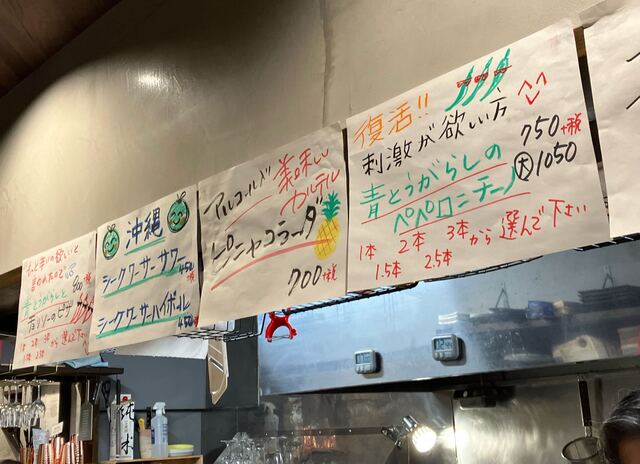 沖縄
シークワーサーサワー
450
シークワーサーハイボール
450
アルコールが
美味しい
カクテル
ピニャコラーダ
700+税
復活!!
刺激が欲しい方
750+税
青とうがらしの
大1050
ペペロンチーノ
1本 2本 3本から選んで下さい
1.5本 2.5本
純米